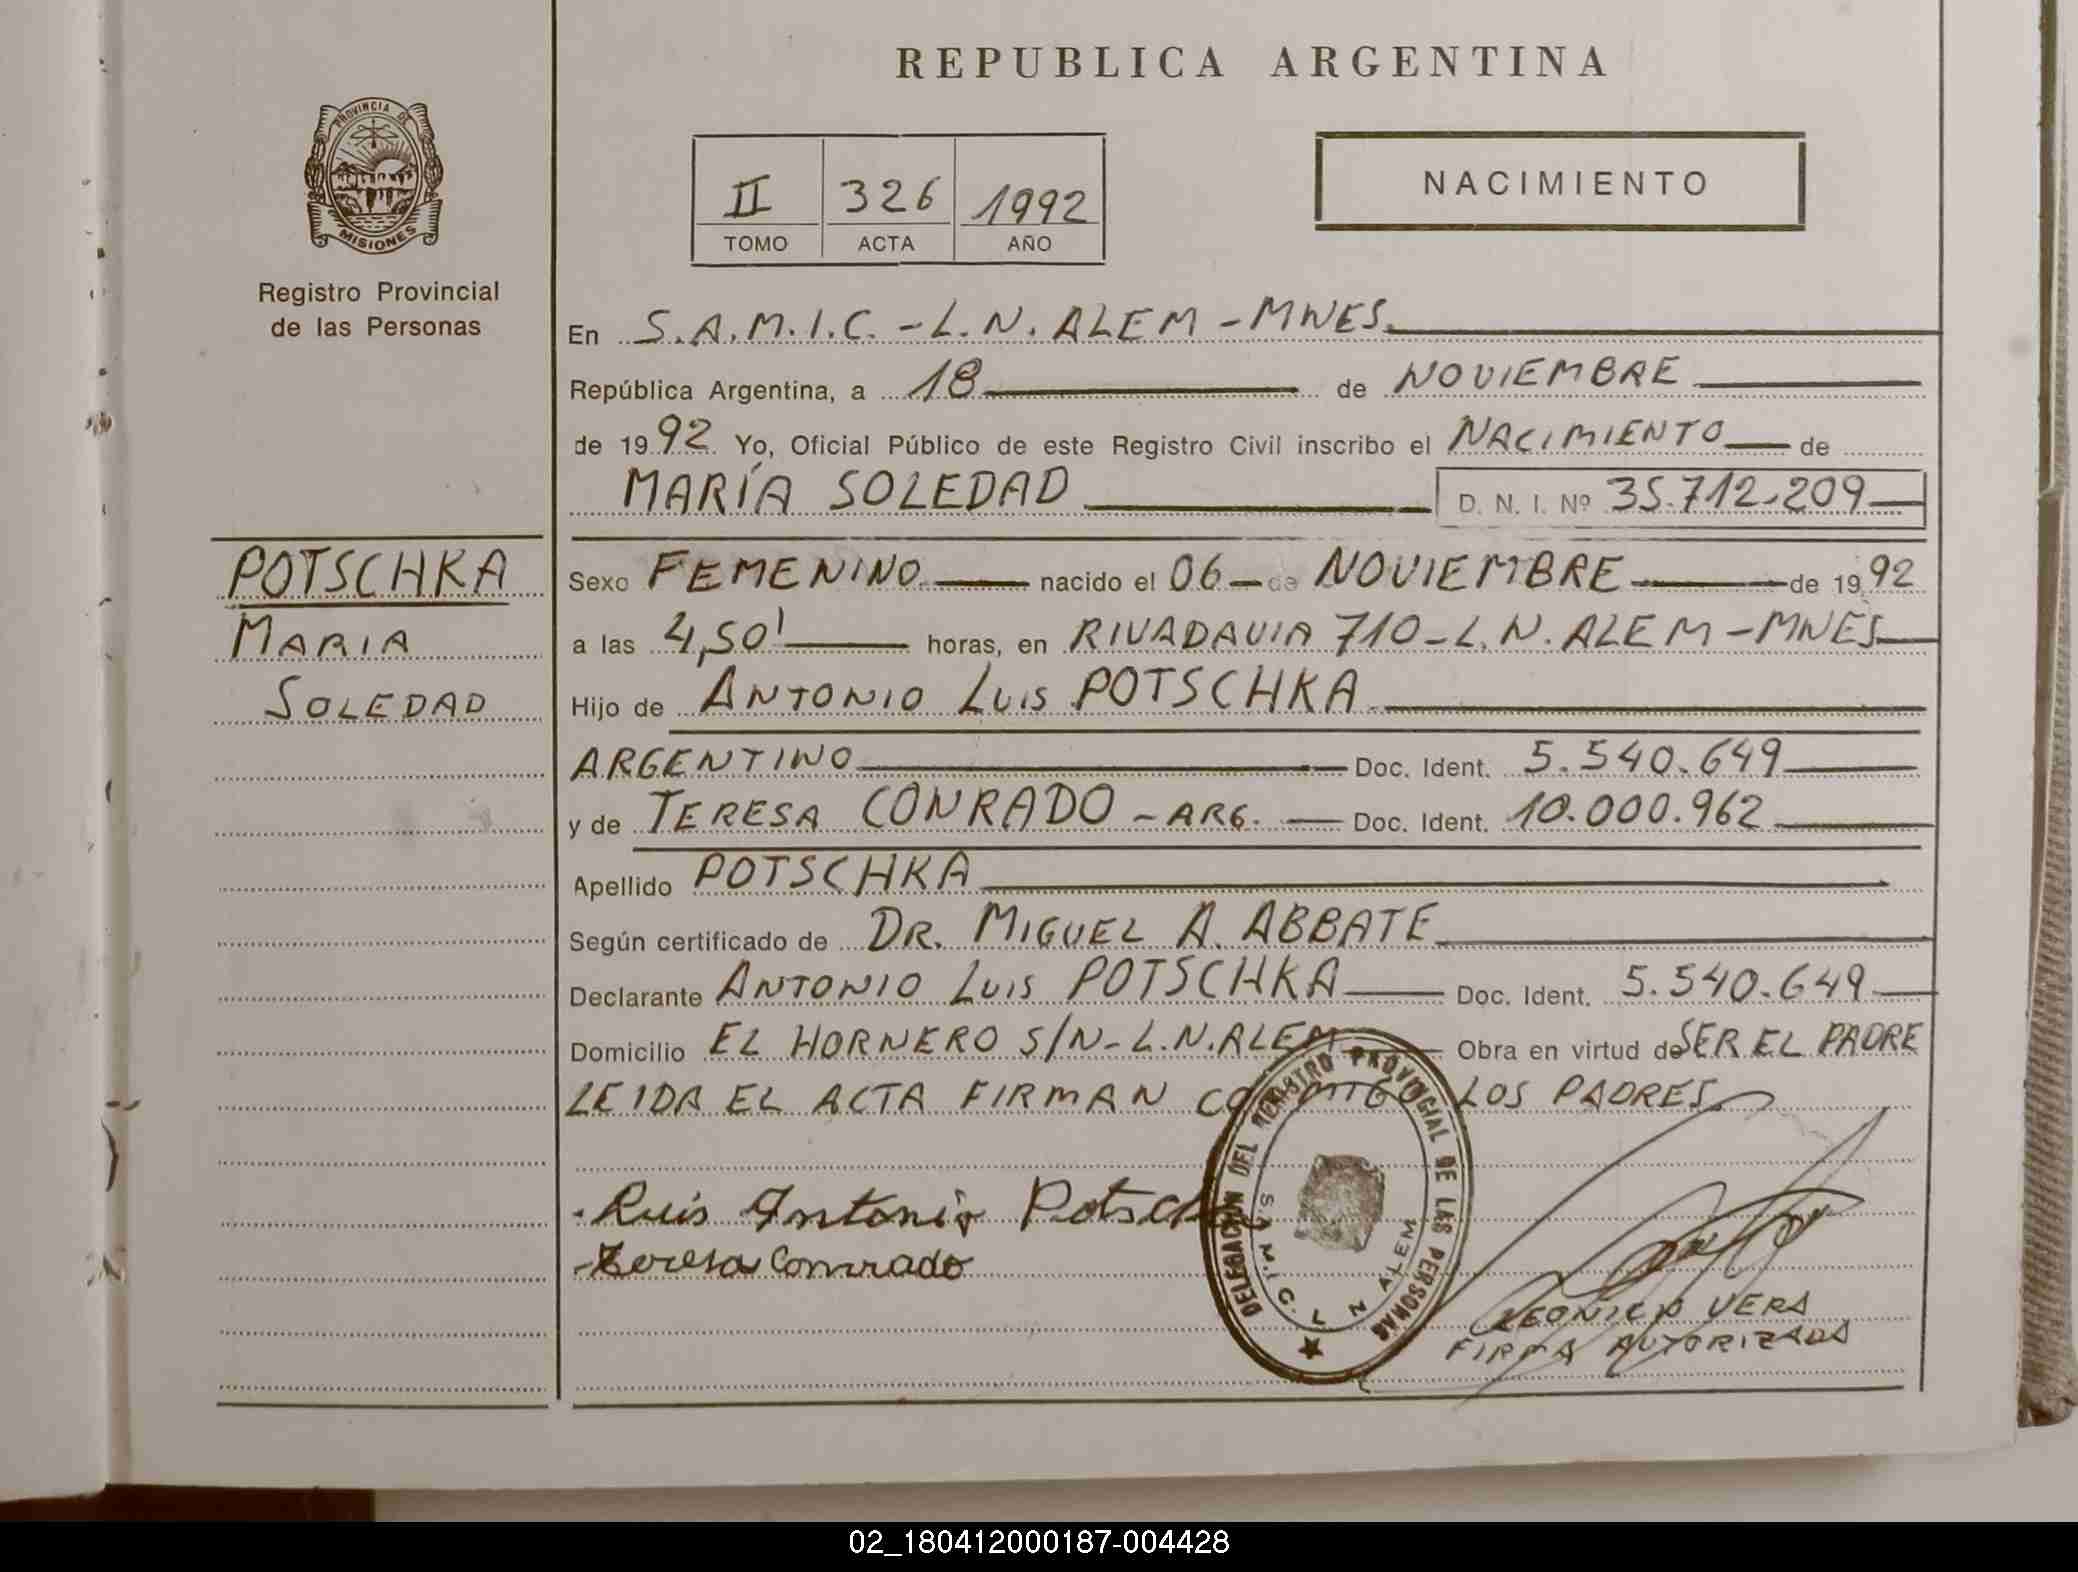 REPUBLICA ARGENTINA
PROVINCIA DE
MISIONES
Registro Provincial
de las Personas
II 326 1992
TOMO ACTA AÑO
NACIMIENTO
En S.A.M.I.C. - L.N. ALEM - MNES.
República Argentina, a 18 de NOVIEMBRE
de 1992 Yo, Oficial Público de este Registro Civil inscribo el NACIMIENTO de
MARÍA SOLEDAD D. N. I. Nº 35.712.209
POTSCHKA
MARIA
SOLEDAD
Sexo FEMENINO nacido el 06 de NOVIEMBRE de 1992
a las 4,50' horas, en RIVADAVIA 710 - L.N. ALEM - MNES
Hijo de ANTONIO LUIS POTSCHKA
ARGENTINO Doc. Ident. 5.540.649
y de TERESA CONRADO - ARG. Doc. Ident. 10.000.962
Apellido POTSCHKA
Según certificado de DR. MIGUEL A. ABBATE
Declarante ANTONIO LUIS POTSCHKA Doc. Ident. 5.540.649
Domicilio EL HORNERO S/N - L.N. ALEM Obra en virtud de SER EL PADRE
LEIDA EL ACTA FIRMAN CONMIGO LOS PADRES.
Luis Antonio Potsch
Teresa Conrado
DELEGACION DEL REGISTRO PROVINCIAL DE LAS PERSONAS
S.A.M.I.C. L N ALEM
LEONICIO VERA
FIRMA AUTORIZADA
02_180412000187-004428